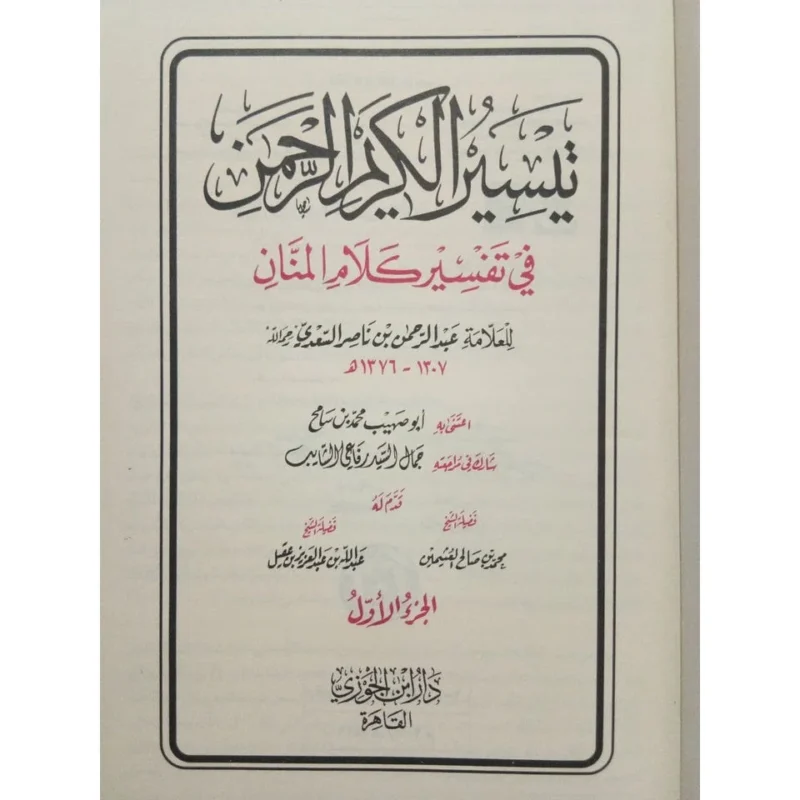 تَيْسِيرُ الْكَرِيمِ الرَّحْمَنِ
فِي تَفْسِيرِ كَلَامِ الْمَنَّانِ
لِلعَلَّامَةِ عَبْدِ الرَّحْمٰنِ بْنِ نَاصِرِ السَّعْدِيِّ رحمه الله
١٣٠٧ - ١٣٧٦ هـ
اعتنى به أبو صهيب محمد بن سامح
شارك في مراجعته جمال السيد رفاعي الشايب
قَدَّمَ لَهُ
فضيلة الشيخ محمد بن صالح العثيمين
فضيلة الشيخ عبد الله بن عبد العزيز بن عقيل
الجُزْءُ الأَوَّلُ
دَارُ ابْنِ الجَوْزِيِّ
القَاهِرَة